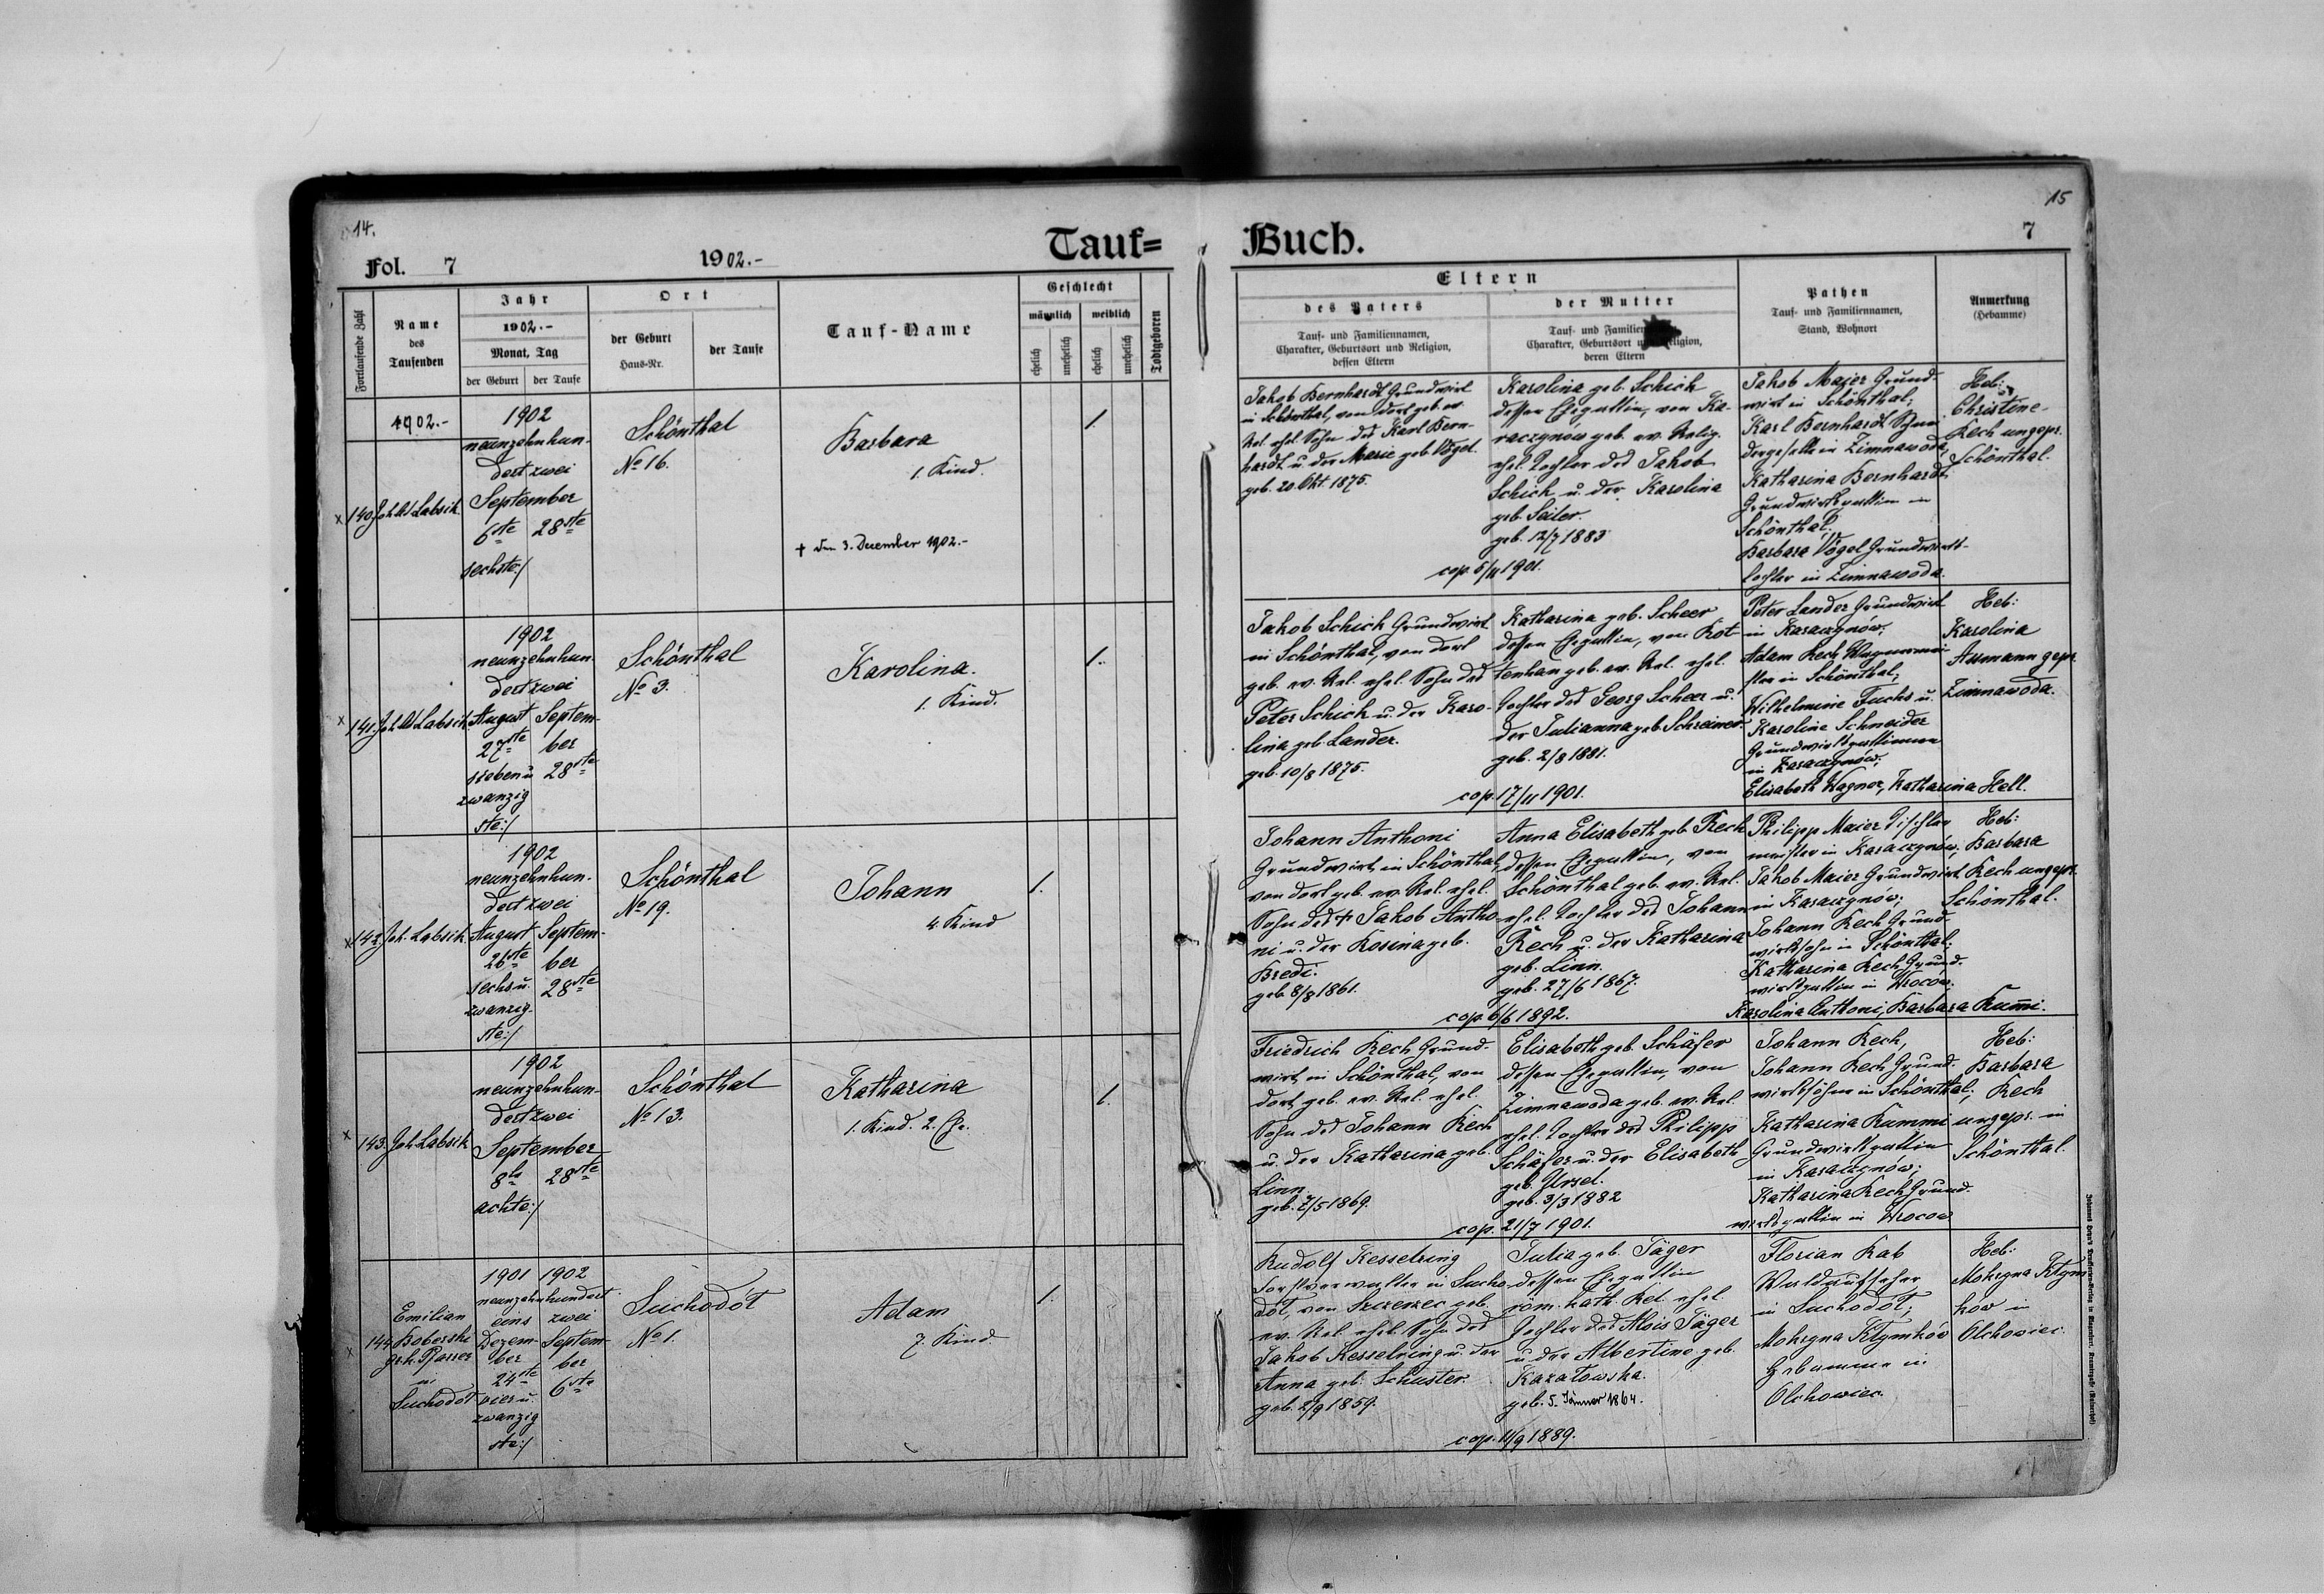 14.
Fol. 7
1902.-
Tauf=
Fortlaufende Zahl
Name
des
Taufenden
Jahr
1902.-
Monat, Tag
der Geburt
der Taufe
Ort
der Geburt
Haus-Nr.
der Taufe
Tauf-Name
Geschlecht
männlich
weiblich
ehelich
unehelich
ehelich
unehelich
Todtgeboren
1902.-
x 140
Labsik
1902
neunzehnhun-
dert zwei
September
6te 28ste
sechste:/
Schönthal
No 16.
Barbara
1. Kind.
† den 3. Dezember 1902.-
1
x 141.
Labsik
1902
neunzehnhun-
dert zwei
August Septem-
27ste ber
sieben u. 28ste
zwanzig
ste:/
Schönthal
No 3.
Karolina.
1. Kind.
1.
x 142
Joh. Labsik
1902
neunzehnhun-
dert zwei
August Septem-
26ste ber
sechs u. 28ste
zwanzig-
ste:/
Schönthal
No 19.
Johann
4. Kind
1.
x 143.
Joh. Labsik
1902
neunzehnhun-
dert zwei
September
8te 28ste
achte:/
Schönthal
No 13.
Katharina
1. Kind. 2. Ehe.
1.
x 144
Emilian
Koberski
gr. k. Pfarrer
in
Suchodół
1901 1902
neunzehnhundert
eins zwei
Dezem- Septem-
ber ber
24ste 6ste
vier u.
zwanzig
ste:/
Suchodół
No 1.
Adam
7. Kind
1.
15
Buch.
7
Eltern
des Vaters
Tauf- und Familiennamen,
Charakter, Geburtsort und Religion,
dessen Eltern
der Mutter
Tauf- und Familien
Charakter, Geburtsort u eligion,
deren Eltern
Pathen
Tauf- und Familiennamen,
Stand, Wohnort
Anmerkung
(Hebamme)
Jakob Bernhardt Grundwirt
in Schönthal, von dort geb. ev.
Rel. ehel. Sohn des Karl Bern-
hardt u. der Marie geb. Vogel.
geb. 20. Okt. 1875.
Karolina geb. Schick
dessen Ehegattin, von Ka-
raczynów geb. ev. Relig.
ehel. Tochter des Jakob
Schick u. der Karolina
geb. Seiler.
geb. 12/7 1883
cop. 5/11 1901.
Jakob Maier Grund-
wirt in Schönthal;
Karl Bernhardt
in Zimnawoda,
Katharina Bernhardt
Grundwirtsgattin in
Schönthal;
Barbara Vogel Grundwirts-
tochter in Zimnawoda.
Heb:
Christine
Kech ungepr.
Schönthal.
Jakob Schick Grundwirt
in Schönthal, von dort
geb. ev. Rel. ehel. Sohn des
Peter Schick u. der Karo-
lina geb. Lander.
geb. 10/8 1875.
Katharina geb. Scheer
dessen Ehegattin, von Rot-
tenhan geb. ev. Rel. ehel.
Tochter des Georg Scheer u.
der Julianna geb. Schreiner.
geb. 2/8 1881.
cop. 17/11 1901.
Peter Lander Grundwirt
in Karaczynów;
Adam Kech Wagnermei-
ster in Schönthal;
Wilhelmine Fuchs u.
Karoline Schneider
Grundwirtsgattinnen
in Karaczynów;
Elisabeth Wagner, Katharina Hell.
Heb:
Karolina
Assmann gepr.
Zimnawoda.
Johann Anthoni
Grundwirt in Schönthal,
von dort geb. ev. Rel. ehel.
Sohn des † Jakob Antho-
ni u. der Rosina geb.
Bredi.
geb. 8/8 1861.
Anna Elisabeth geb. Kech
dessen Ehegattin, von
Schönthal geb. ev. Rel.
ehel. Tochter des Johann
Kech u. der Katharina
geb. Linn.
geb. 27/6 1867.
cop. 6/6 1892.
Philipp Maier Tischler-
meister in Karaczynów,
Jakob Maier Grundwirt
in Karaczynów;
Johann Kech Grund-
wirtssohn in Schönthal;
Katharina Kech Grund-
wirtsgattin in Wrocow;
Karolina Anthoni, Barbara Kum̄i.
Heb:
Barbara
Kech ungepr.
Schönthal.
Friedrich Kech Grund-
wirt in Schönthal, von
dort geb. ev. Rel. ehel.
Sohn des Johann Kech
u. der Katharina geb.
Linn.
geb. 7/5 1869.
Elisabeth geb. Schäfer
dessen Ehegattin, von
Zimnawoda geb. ev. Rel.
ehel. Tochter des Philipp
Schäfer u. der Elisabeth
geb. Ursel.
geb. 3/3 1882
cop. 21/7 1901.
Johann Kech,
Johann Kech Grund-
wirtssöhne in Schönthal;
Katharina Kummi
Grundwirtsgattin
in Karaczynów;
Katharina Kech Grund-
wirtsgattin in Wrocow
Heb:
Barbara
Kech
ungepr. in
Schönthal.
Rudolf Kesselring
Forstverwalter in Sucho-
dół, von Szczerzec geb.
ev. Rel. ehel. Sohn des
Jakob Kesselring u. der
Anna geb. Schuster.
geb. 2/9 1859.
Julia geb. Jäger
dessen Ehegattin
röm. kath. Rel. ehel.
Tochter des Alois Jäger
u. der Albertine geb.
Kazatowska.
geb. 5. Jänner 1864.
cop. 11/9 1889.
Florian Kab
Waldaufseher
in Suchodół;
Mokryna Kłymków
Hebamme in
Olchowiec.
Heb:
Mokryna Kłym
ków in
Olchowiec.